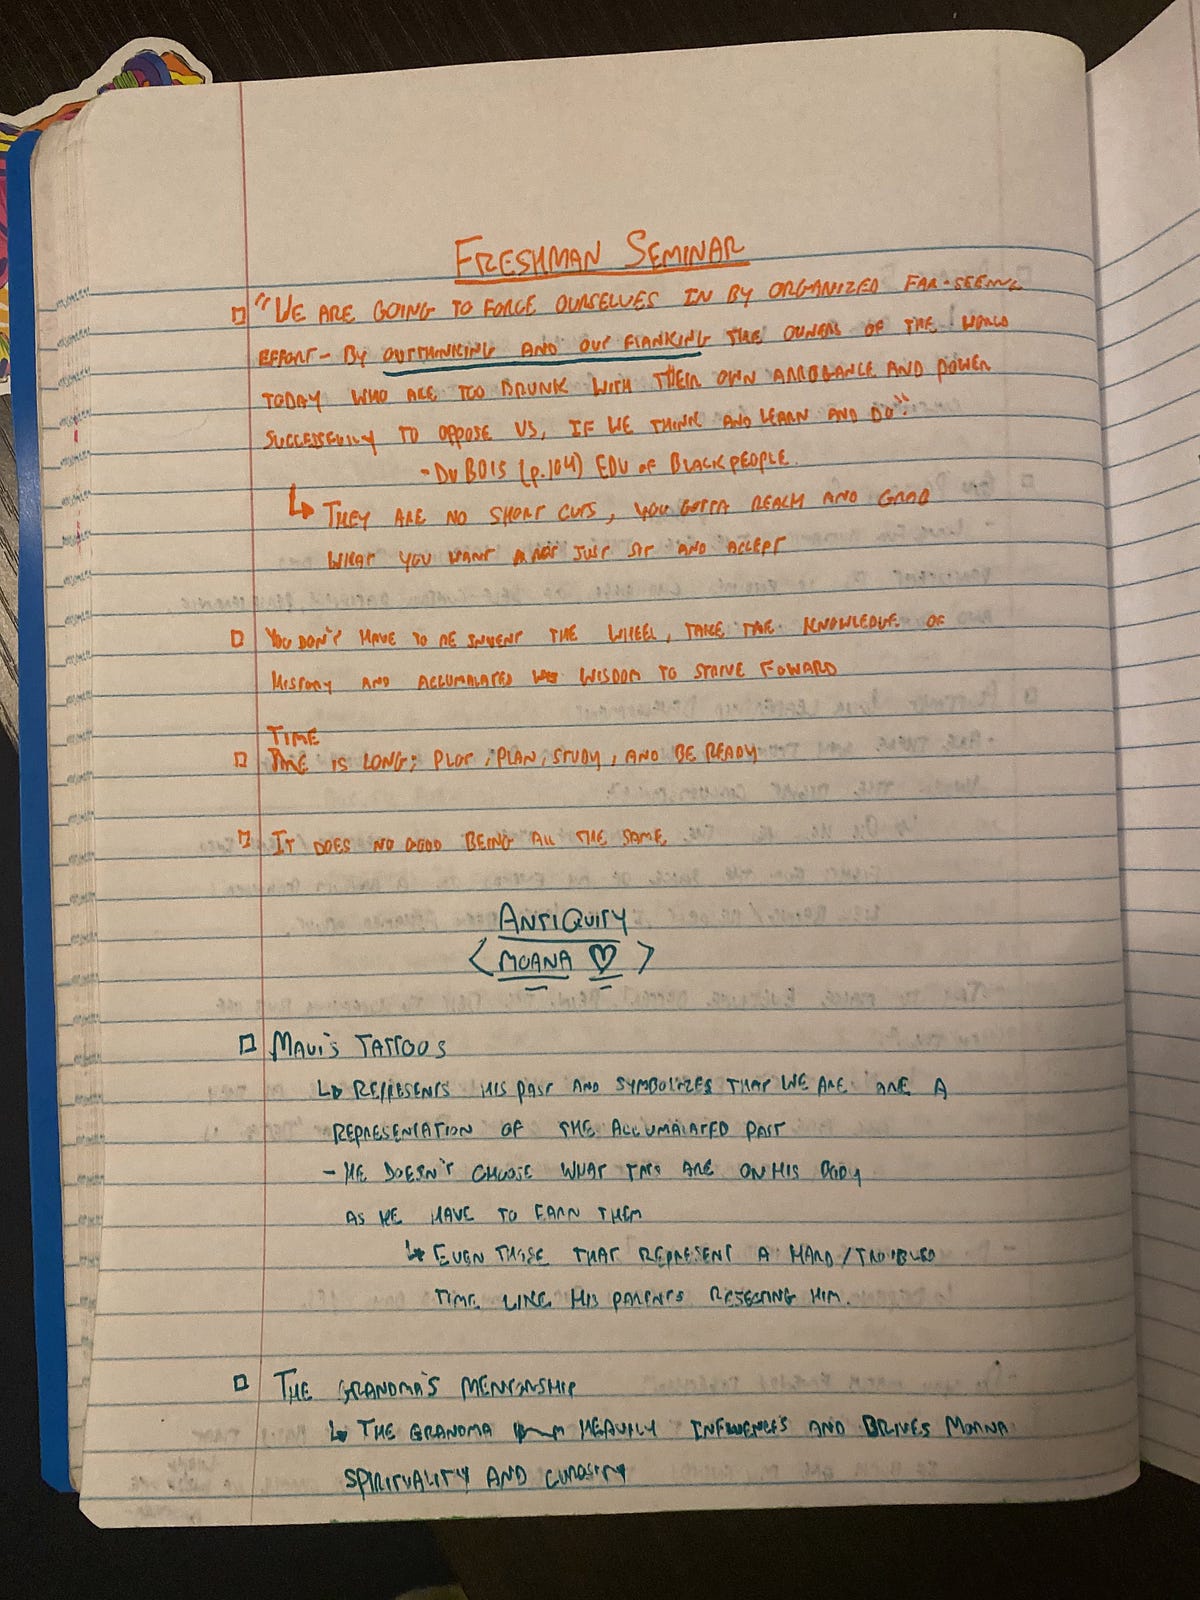 FRESHMAN SEMINAR
"WE ARE GOING TO FORCE OURSELVES IN BY ORGANIZED FAR-SEEING
EFFORT - BY OUTTHINKING AND OUT FLANKING THE OWNERS OF THE WORLD
TODAY WHO ARE TOO DRUNK WITH THEIR OWN ARROGANCE AND POWER
SUCCESSFULLY TO OPPOSE US, IF WE THINK AND LEARN AND DO"
- DU BOIS (p.104) EDU OF BLACK PEOPLE.
↳ THEY ARE NO SHORT CUTS, YOU GOTTA REACH AND GRAB
WHAT YOU WANT NOT JUST SIT AND ACCEPT
YOU DON'T HAVE TO RE INVENT THE WHEEL, TAKE THE KNOWLEDGE OF
HISTORY AND ACCUMALATED WISDOM TO STRIVE FOWARD
TIME
TIME IS LONG; PLOT, PLAN, STUDY, AND BE READY
IT DOES NO GOOD BEING ALL THE SAME.
ANTIQUITY
< MOANA ♡ >
MAUI'S TATTOOS
↳ REPRESENTS HIS PAST AND SYMBOLIZES THAT WE ARE ARE A
REPRESENTATION OF THE ACCUMALATED PAST
- HE DOESN'T CHOOSE WHAT TATS ARE ON HIS BODY
AS HE HAVE TO EARN THEM
↳ EVEN THOSE THAT REPRESENT A HARD/TROUBLED
TIME LIKE HIS PARENTS REJECTING HIM.
THE GRANDMA'S MENTORSHIP
↳ THE GRANDMA HEAVILY INFLUENCES AND DRIVES MOANA
SPIRITUALITY AND CURIOSITY